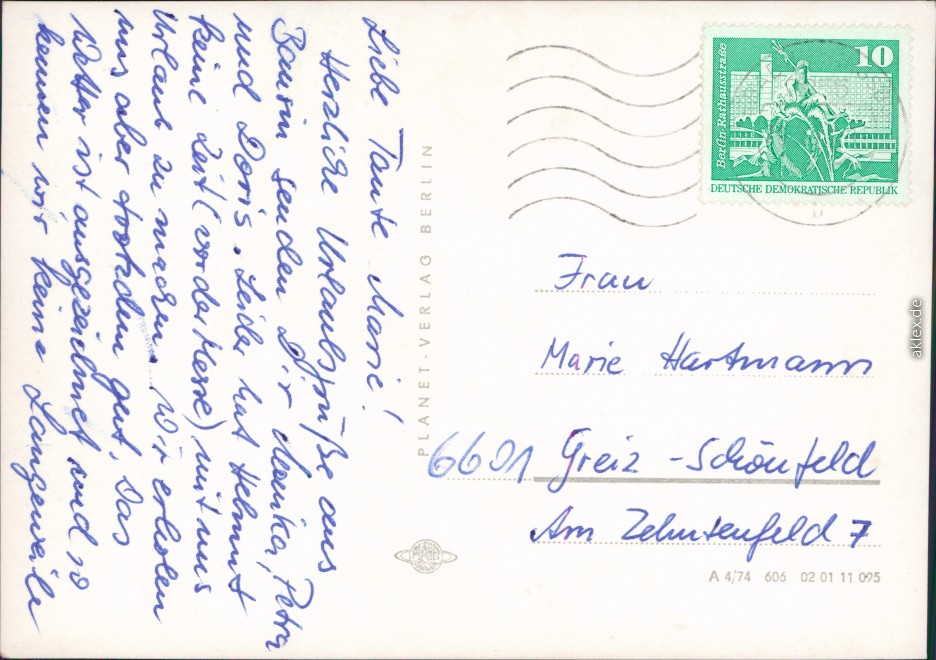 Liebe Tante Marie!
Herzliche Urlaubsgrüße aus
Bansin senden Dir Monika, Petra
und Doris. Leider hat Helmut
keine Zeit (vor der Messe) mit uns
Urlaub zu machen. Wir erholen
uns aber trotzdem gut. Das
Wetter ist ausgezeichnet und so
kennen wir keine Langeweile
PLANET-VERLAG BERLIN
Berlin-Rathausstraße
10
DEUTSCHE DEMOKRATISCHE REPUBLIK
Frau
Marie Hartmann
6601 Greiz - Schönfeld
Am Zehntenfeld 7
A 4/74 606 02 01 11 095
aklex.de